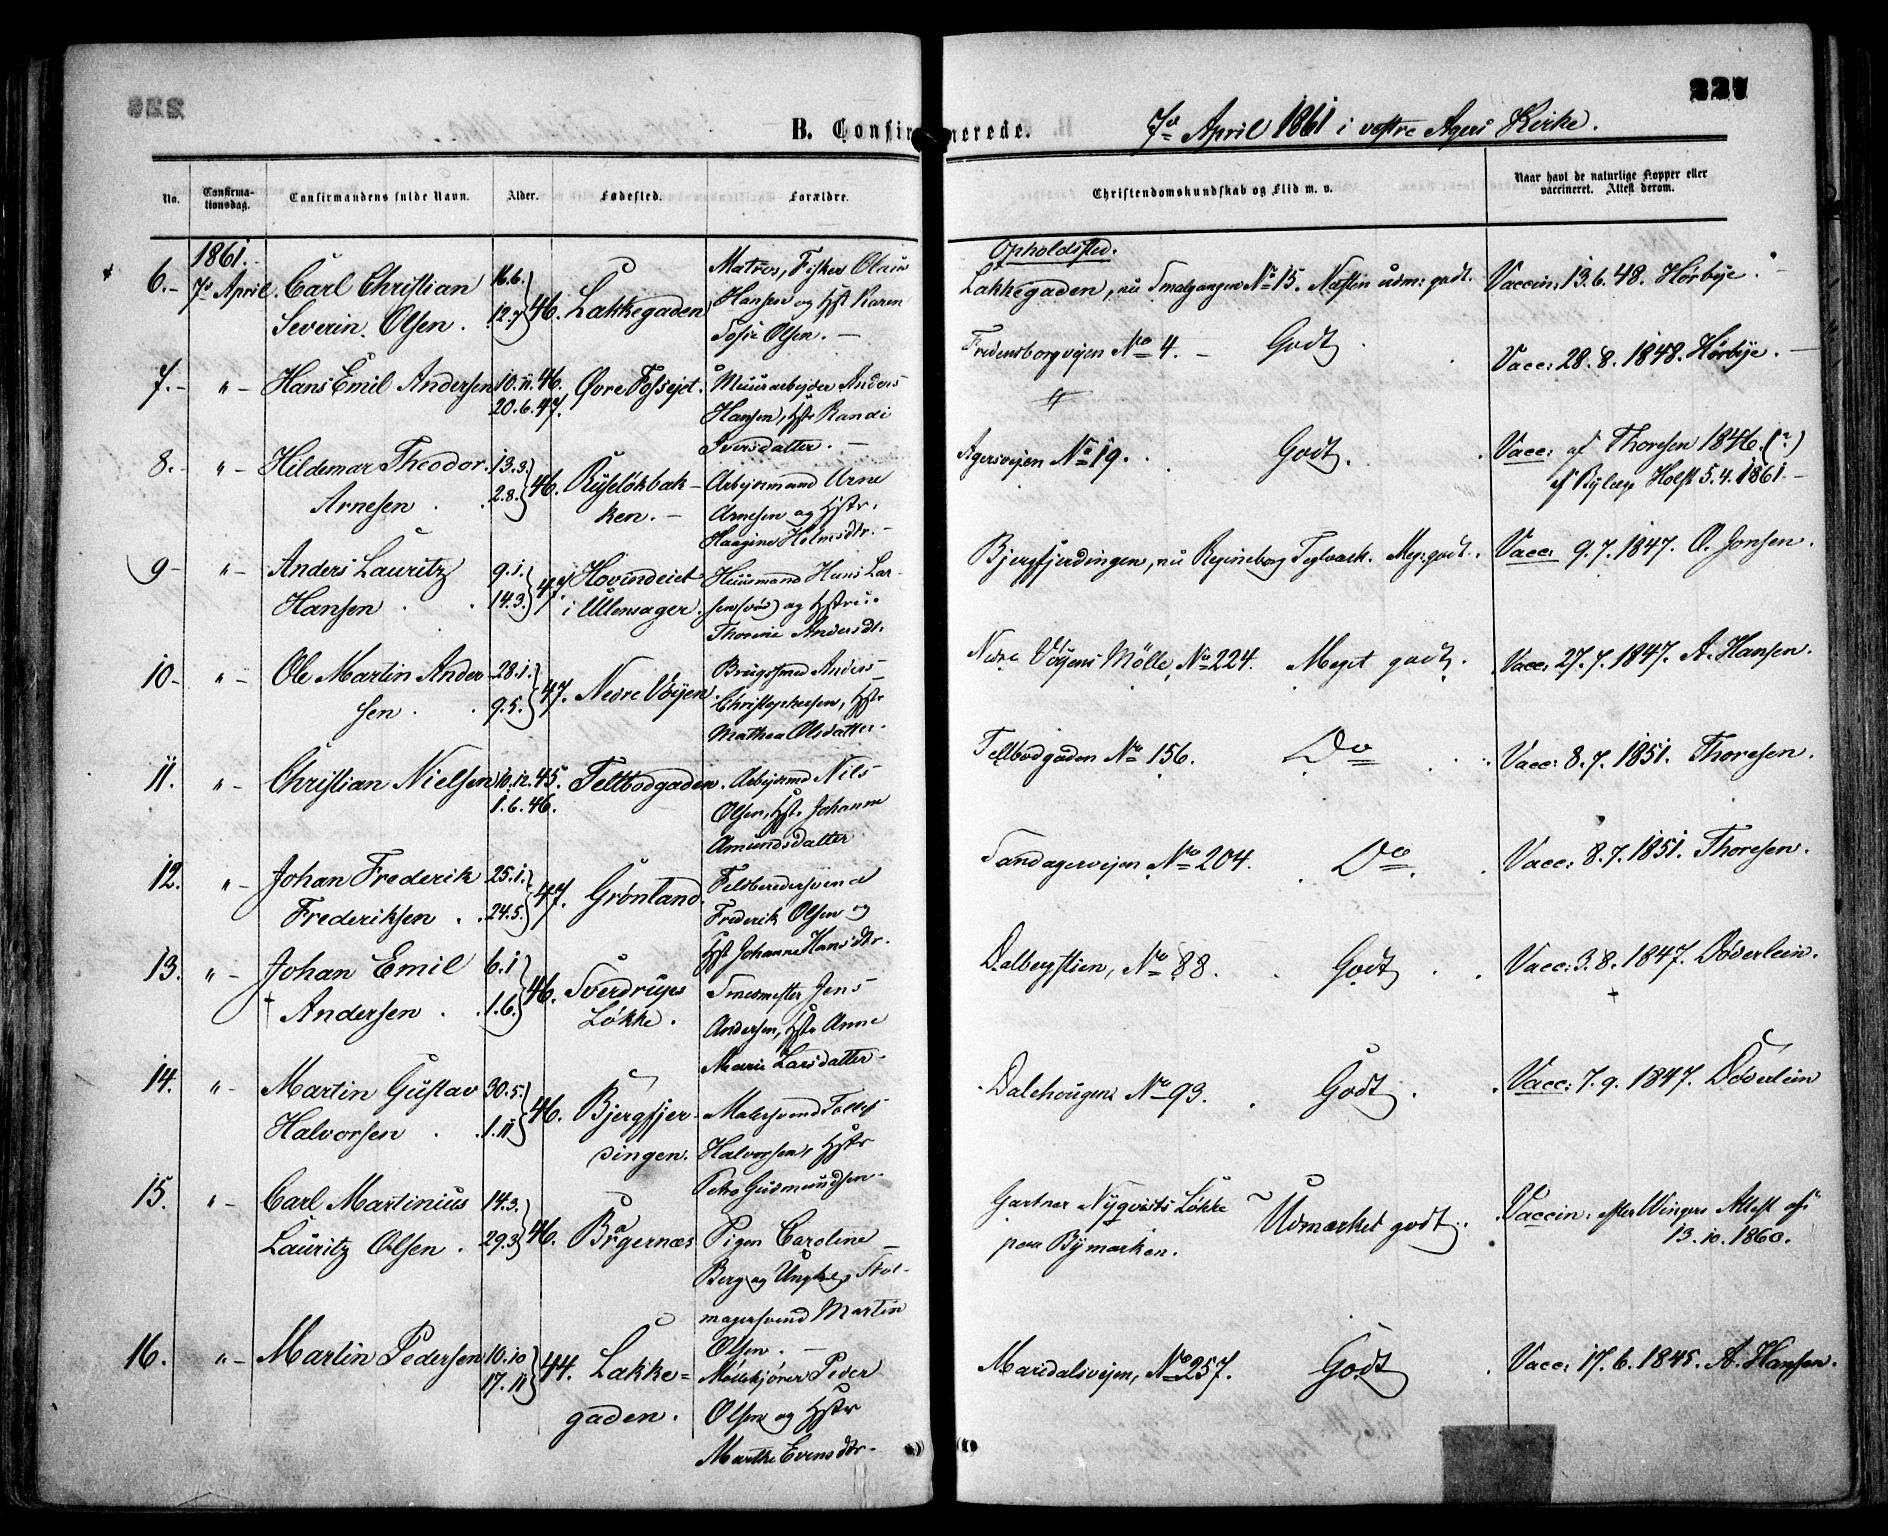 227
B. Confirmerede. 7de April 1861 i vestre Agers Kirke.
No. Confirmationsdag. Confirmandens fulde Navn. Alder. Fødested. Forældre. Christendomskundskab og Flid m. v. Naar havt de naturlige Kopper eller vaccineret. Attest derom.
1861. Opholdsted.
6. 7de April. Carl Christian Severin Olsen. 16.6. 12.7 46. Lakkegaden Matros, Fisker Olaus Hansen og Hst. Karen Sofie Olsen. Lakkegaden, nu Smalgangen No 15. Næsten udm: godt. Vaccin: 13.6.48. Hørbye.
7. " Hans Emil Andersen 10.11.46. 20.6.47. Øvre Fossejet. Muurarbejder Anders Hansen, Hst. Randi Iversdatter. Fredensborgvejen No 4. Godt Vacc: 28.8.1848. Hørbye.
8. " Hildemar Theodor Arnesen 13.3. 2.8. 46. Ruseløkbakken. Arbejdsmand Arne Arnesen og Hstr. Haagine Holmsdtr. Agersvejen No 19. Godt. Vacc: af Thoresen 1846. (?) af Bylæge Holst 5.4.1861.
9 " Anders Lauritz Hansen 9.1. 14.3. 47. Hovindeiet i Ullensager. Huusmand Hans Larsen og Hstru. Thorine Andersdt. Bjergfjerdingen, nu Regineborg Teglværk. Meg: godt. Vacc: 9.7.1847. O. Jonsen.
10 " Ole Martin Andersen 28.1. 9.5. 47. Nedre Vøyen. Brugssmed Anders Christophersen, Hst. Mathea Olsdatter. Nedre Vøyens Mølle, No 224. Meget godt. Vacc: 27.7.1847. A. Hansen.
11. " Christian Nielsen 10.12.45. 1.6.46. Teltbodgaden. Arbejdsmd Nils Olsen, Hst. Johanne Amundsdatter Teltbodgaden No 156. Do Vacc: 8.7.1851. Thoresen.
12. " Johan Frederik Frederiksen 25.1. 24.5. 47. Grønland. Feldberedersvend Frederik Olsen og Hst Johanne Hansdtr. Sandagervejen No 204. Do. Vacc: 8.7.1851. Thoresen.
13. " Johan Emil Andersen 6.1 1.6. 46. Sverdrups Løkke. Smedmester Jens Andersen, Hst. Anne Marie Larsdatter. Dalbergstien, No 88. Godt Vacc: 3.8.1847. Døderlein.
14. " Martin Gustav Halvorsen 30.5. 1.11 46. Bjergfjerdingen. Malersvend Tollef Halvorsen, Hstr Petra Gudmundsen. Dalehougens No 93. Godt Vacc: 7.9.1847. Døderlein
15. " Carl Martinius Lauritz Olsen. 14.3. 29.3 46. Bragernæs Pigen Caroline Berg og Ungkl. Stolmagersvend Martin Olsen. Gartner Nyqvists Løkke paa Bymarken. Udmærket godt. Vaccin: efter Wingers Attest af 13.10.1860.
16. " Martin Pedersen 10.10 17.11 44. Lakkegaden. Møllekjører Peder Olsen og Hstr Marthe Evensdtr. Maridalsvejen, No 257. Godt Vacc: 17.6.1845. A. Hansen.